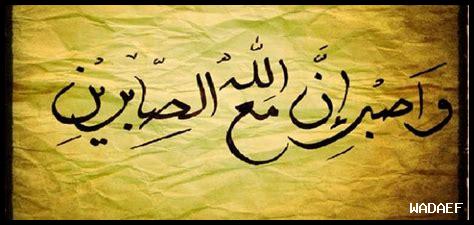 وَاصبر إنَّ اللّه مع الصّابرين
WADAEF